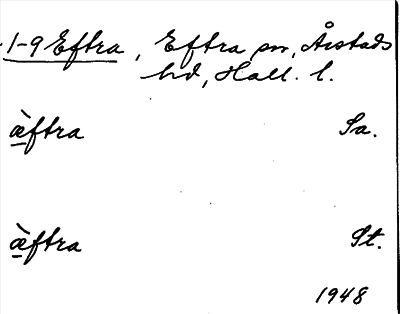 1-9 Eftra, Eftra sn, Årstads
hd, Hall. l.
æ̀ftra Sa.
æ̀ftra St.
1948